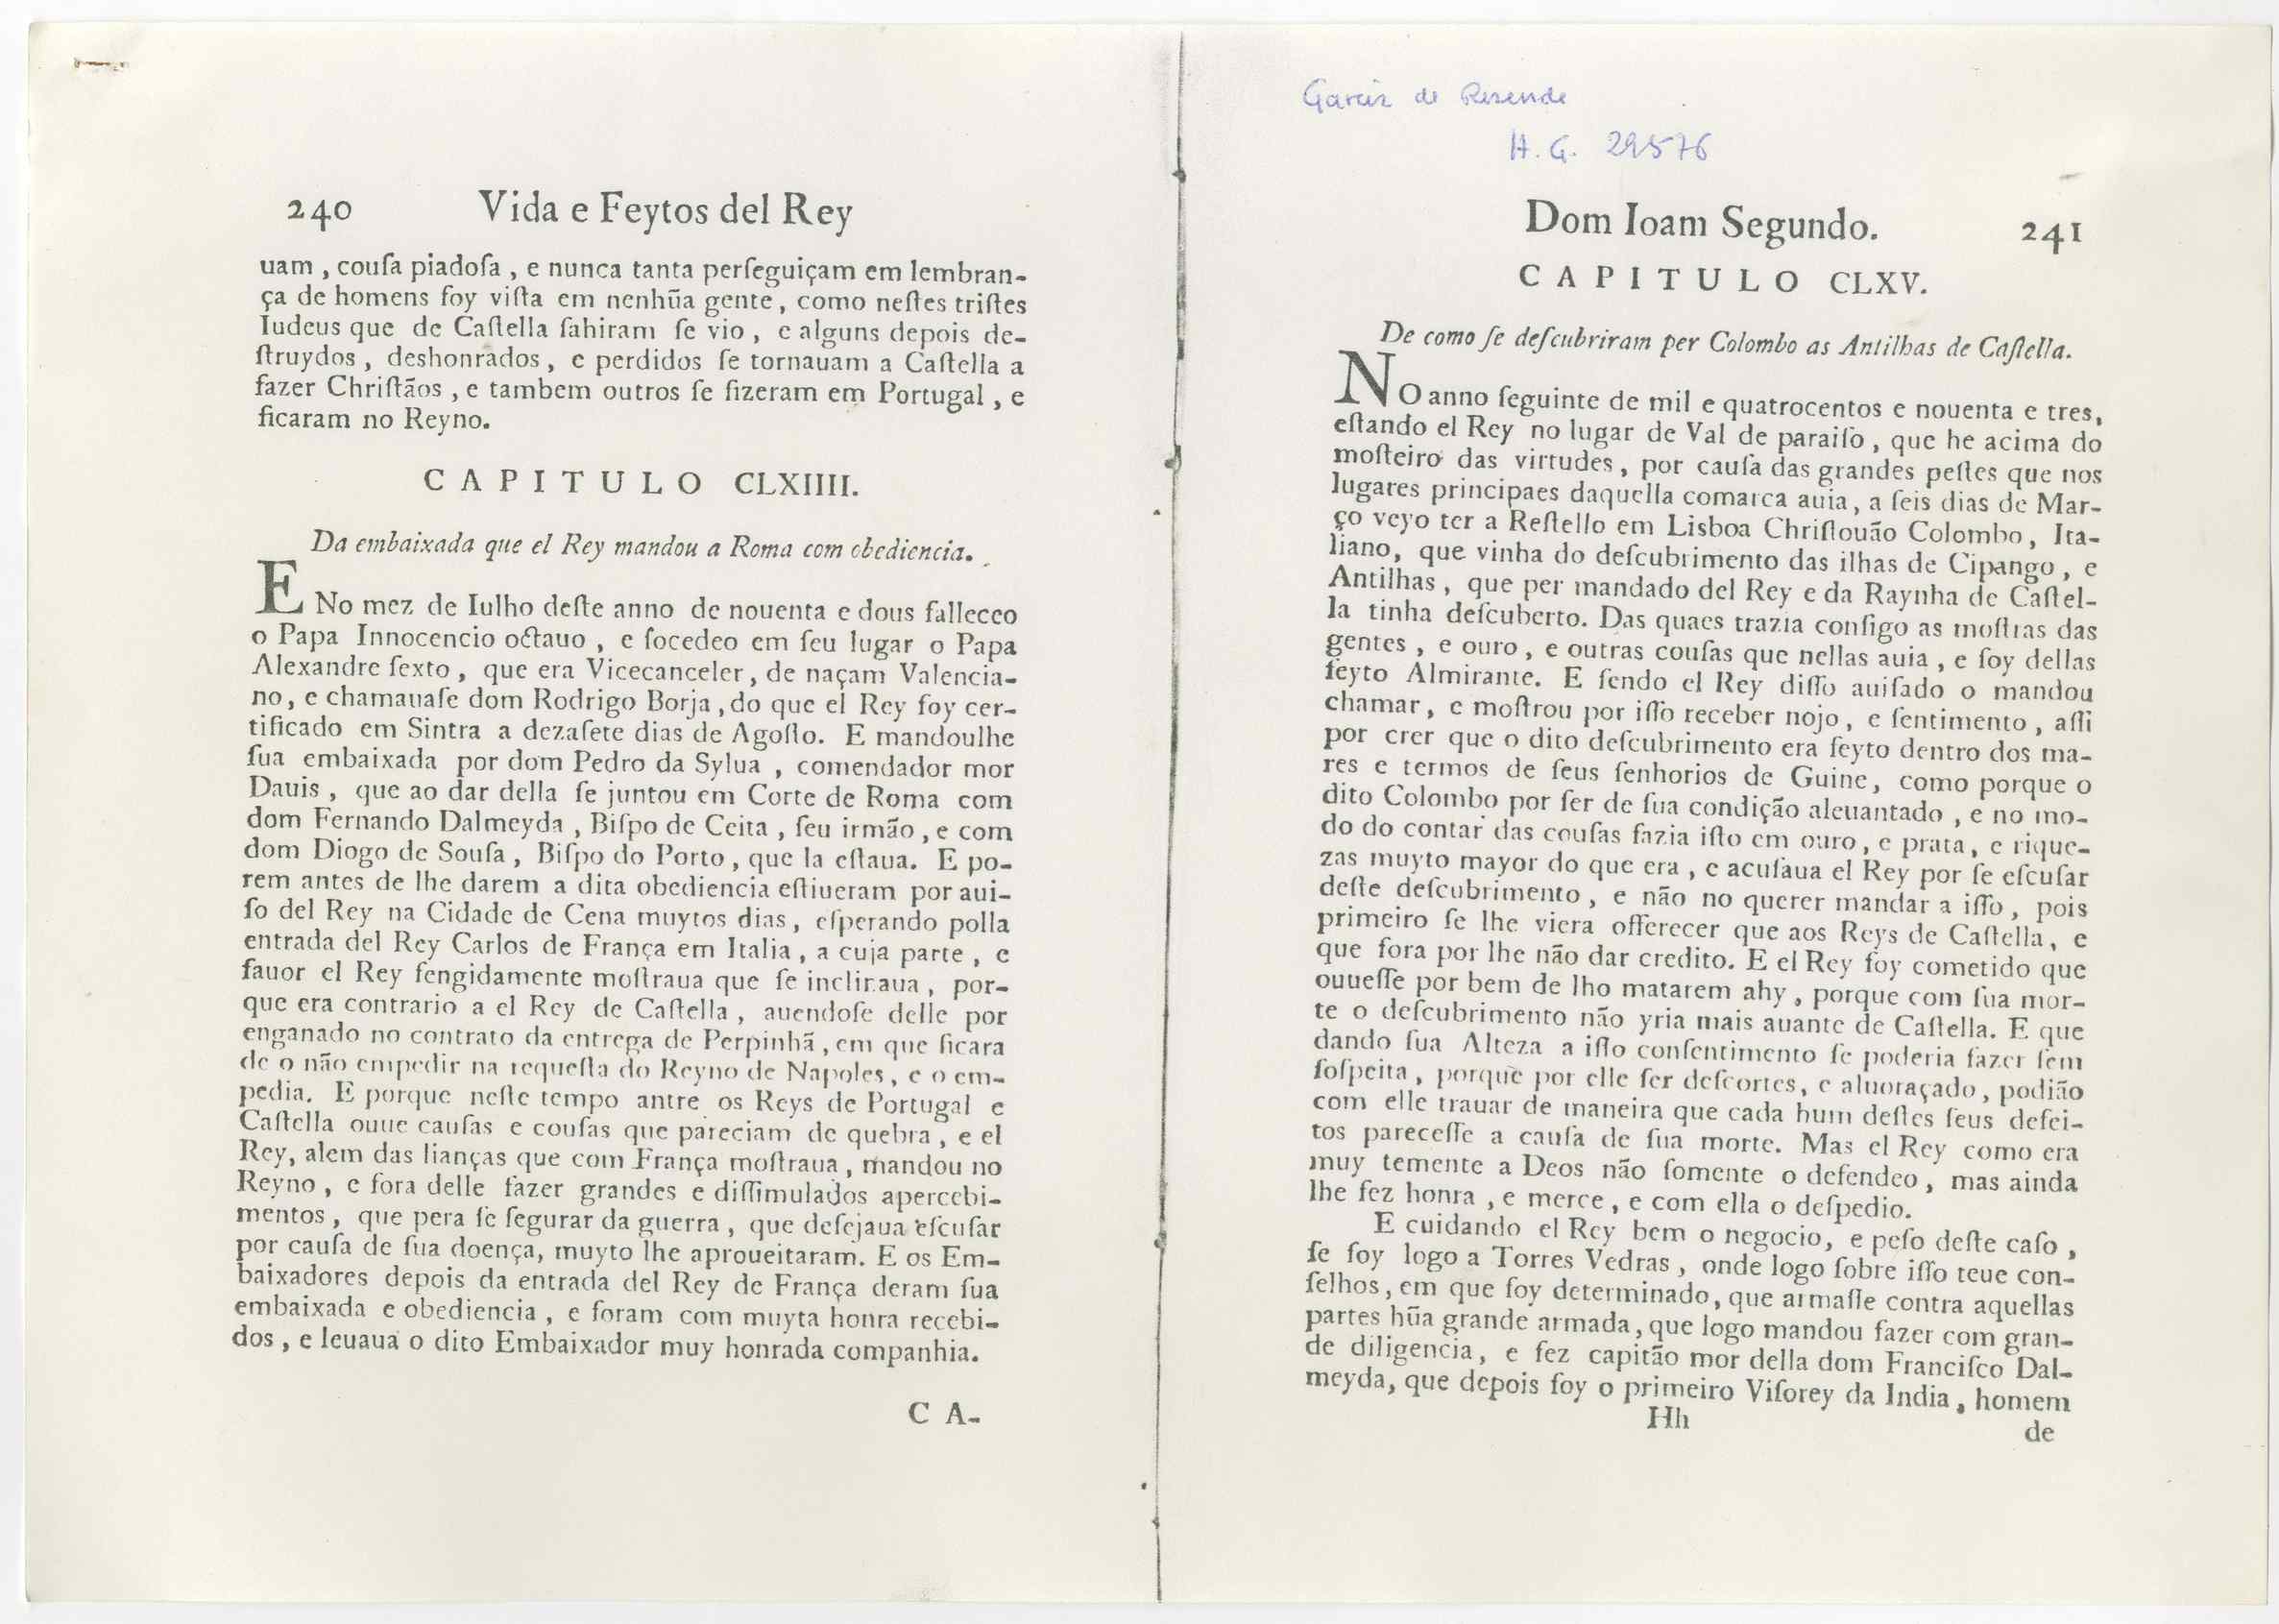 240 Vida e Feytos del Rey
uam , couſa piadoſa , e nunca tanta perſeguiçam em lembran-
ça de homens foy viſta em nenhũa gente, como neſtes triſtes
Iudeus que de Caſtella ſahiram ſe vio, e alguns depois de-
ſtruydos, deshonrados, e perdidos ſe tornauam a Caſtella a
fazer Chriſtãos, e tambem outros ſe fizeram em Portugal, e
ficaram no Reyno.
CAPITULO CLXIIII.
Da embaixada que el Rey mandou a Roma com obediencia.
E No mez de Iulho deſte anno de nouenta e dous falleceo
o Papa Innocencio octauo, e ſocedeo em ſeu lugar o Papa
Alexandre ſexto, que era Vicecanceler, de naçam Valencia-
no, e chamauaſe dom Rodrigo Borja, do que el Rey foy cer-
tificado em Sintra a dezaſete dias de Agoſto. E mandoulhe
ſua embaixada por dom Pedro da Sylua, comendador mor
Dauis, que ao dar della ſe juntou em Corte de Roma com
dom Fernando Dalmeyda, Biſpo de Ceita, ſeu irmão, e com
dom Diogo de Souſa, Biſpo do Porto, que la eſtaua. E po-
rem antes de lhe darem a dita obediencia eſtiueram por aui-
ſo del Rey na Cidade de Cena muytos dias, eſperando polla
entrada del Rey Carlos de França em Italia, a cuja parte, e
fauor el Rey fengidamente moſtraua que ſe inclinaua, por-
que era contrario a el Rey de Caſtella, auendoſe delle por
enganado no contrato da entrega de Perpinhã, em que ficara
de o não empedir na requeſta do Reyno de Napoles, e o em-
pedia. E porque neſte tempo antre os Reys de Portugal e
Caſtella ouue cauſas e couſas que pareciam de quebra, e el
Rey, alem das lianças que com França moſtraua, mandou no
Reyno, e fora delle fazer grandes e diſſimulados apercebi-
mentos, que pera ſe ſegurar da guerra, que deſejaua eſcuſar
por cauſa de ſua doença, muyto lhe aproueitaram. E os Em-
baixadores depois da entrada del Rey de França deram ſua
embaixada e obediencia, e foram com muyta honra recebi-
dos, e leuaua o dito Embaixador muy honrada companhia.
C A-
Garcia de Resende
H. G. 29576
Dom Ioam Segundo. 241
CAPITULO CLXV.
De como ſe deſcubriram per Colombo as Antilhas de Caſtella.
NO anno ſeguinte de mil e quatrocentos e nouenta e tres,
eſtando el Rey no lugar de Val de paraiſo, que he acima do
moſteiro das virtudes, por cauſa das grandes peſtes que nos
lugares principaes daquella comarca auia, a ſeis dias de Mar-
ço veyo ter a Reſtello em Lisboa Chriſtouão Colombo, Ita-
liano, que vinha do deſcubrimento das ilhas de Cipango, e
Antilhas, que per mandado del Rey e da Raynha de Caſtel-
la tinha deſcuberto. Das quaes trazia conſigo as moſtras das
gentes, e ouro, e outras couſas que nellas auia, e foy dellas
feyto Almirante. E ſendo el Rey diſſo auiſado o mandou
chamar, e moſtrou por iſſo receber nojo, e ſentimento, aſſi
por crer que o dito deſcubrimento era feyto dentro dos ma-
res e termos de ſeus ſenhorios de Guine, como porque o
dito Colombo por ſer de ſua condição aleuantado, e no mo-
do do contar das couſas fazia iſto em ouro, e prata, e rique-
zas muyto mayor do que era, e acuſaua el Rey por ſe eſcuſar
deſte deſcubrimento, e não no querer mandar a iſſo, pois
primeiro ſe lhe viera offerecer que aos Reys de Caſtella, e
que fora por lhe não dar credito. E el Rey foy cometido que
ouueſſe por bem de lho matarem ahy, porque com ſua mor-
te o deſcubrimento não yria mais auante de Caſtella. E que
dando ſua Alteza a iſſo conſentimento ſe poderia fazer ſem
ſoſpeita, porque por elle ſer deſcortes, e aluoraçado, podião
com elle trauar de maneira que cada hum deſtes ſeus defei-
tos pareceſſe a cauſa de ſua morte. Mas el Rey como era
muy temente a Deos não ſomente o defendeo, mas ainda
lhe fez honra, e merce, e com ella o deſpedio.
E cuidando el Rey bem o negocio, e peſo deſte caſo,
ſe foy logo a Torres Vedras, onde logo ſobre iſſo teue con-
ſelhos, em que foy determinado, que armaſſe contra aquellas
partes hũa grande armada, que logo mandou fazer com gran-
de diligencia, e fez capitão mor della dom Franciſco Dal-
meyda, que depois foy o primeiro Viſorey da India, homem
Hh de